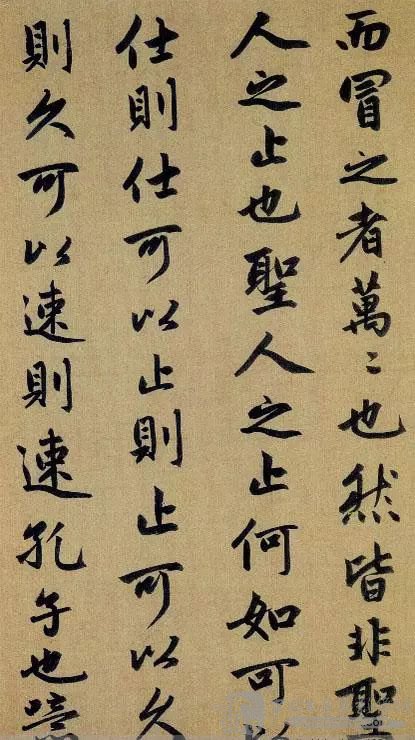 而冒之者萬〻也然皆非聖
人之止也聖人之止何如可以
仕則仕可以止則止可以久
則久可以速則速孔子也噫